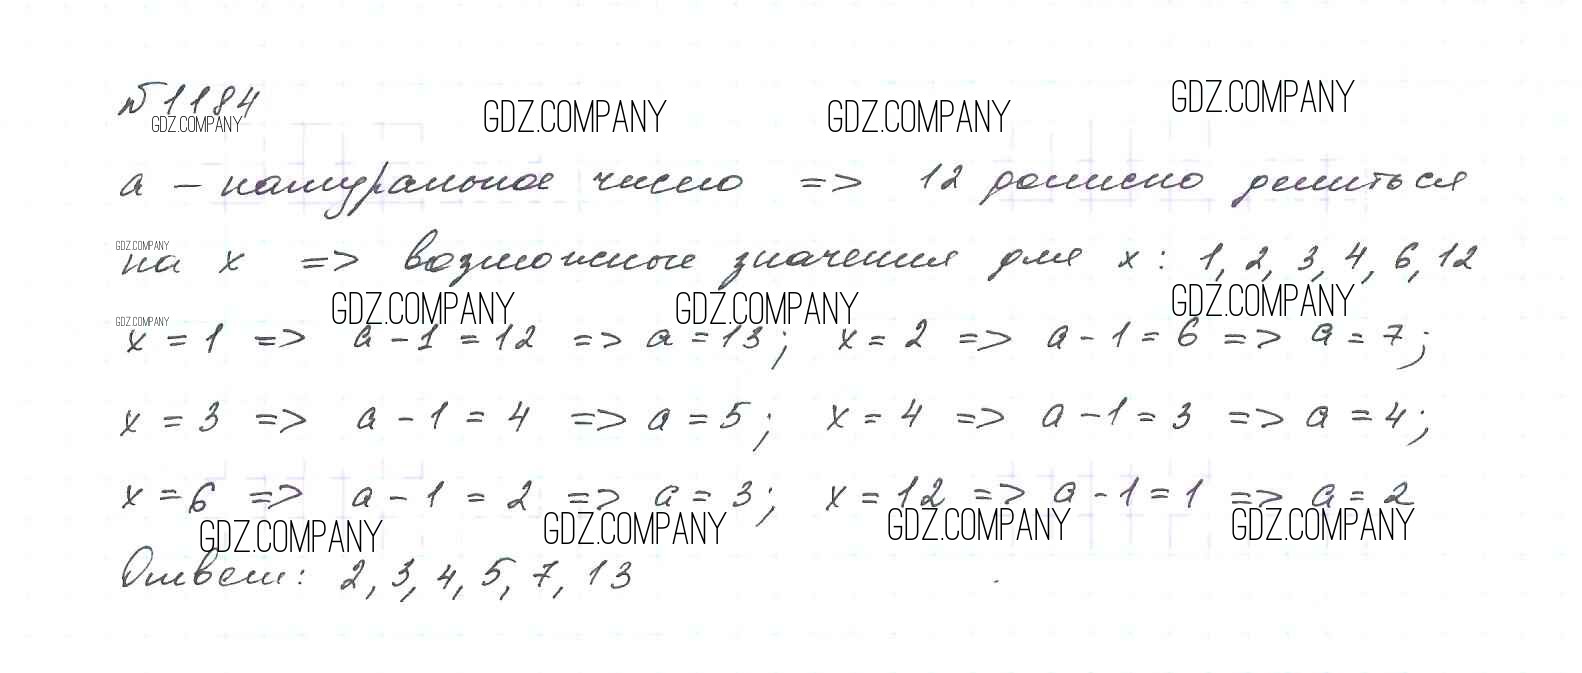 №1184
GDZ.COMPANY GDZ.COMPANY GDZ.COMPANY GDZ.COMPANY
a – натуральное число => 12 должно делиться
GDZ.COMPANY
на x => возможные значения для x: 1, 2, 3, 4, 6, 12
GDZ.COMPANY GDZ.COMPANY GDZ.COMPANY GDZ.COMPANY
x = 1 => a – 1 = 12 => a = 13; x = 2 => a – 1 = 6 => a = 7;
x = 3 => a – 1 = 4 => a = 5; x = 4 => a – 1 = 3 => a = 4;
x = 6 => a – 1 = 2 => a = 3; x = 12 => a – 1 = 1 => a = 2
GDZ.COMPANY GDZ.COMPANY GDZ.COMPANY GDZ.COMPANY
Ответ: 2, 3, 4, 5, 7, 13